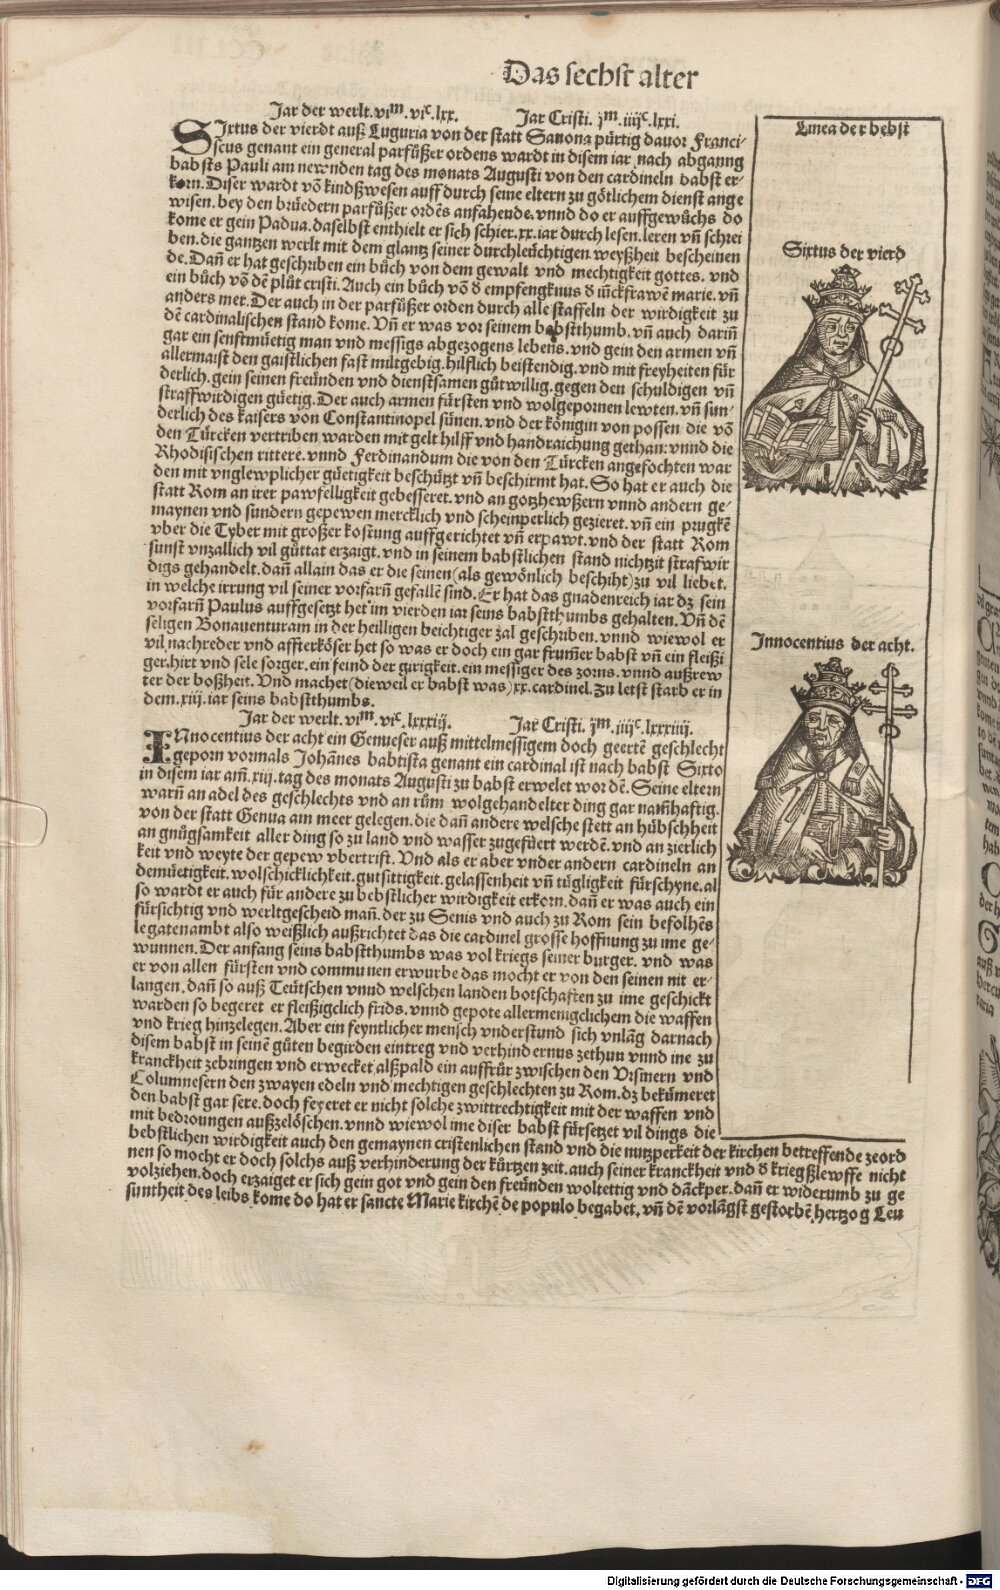 Das sechst alter
Jar der werlt.vi^m.vi^c.lxx.
Jar Cristi.j^m.iiij^c.lxxi.
Linea der bebst
SIxtus der vierdt auß Luguria von der statt Sauona pürtig dauor Franci-
scus genant ein general parfüßer ordens wardt in disem iar nach abgang
babsts Pauli am newnden tag des monats Augusti von den cardineln babst er-
korn. Diser wardt võ kindßwesen auff durch seine eltern zu götlichem dienst ange
wisen.bey den brüedern parfüßer ordẽs anfahende.vnnd do er auffgewůchs do
kome er gein Padua.daselbst enthielt er sich schier.xx.iar durch lesen.leren vñ schrei
ben.die gantzen werlt mit dem glantz seiner durchleüchtigen weyßheit bescheinen
de.Dañ er hat geschriben ein bůch von dem gewalt vnd mechtigkeit gottes. vnd
ein bůch võ dẽ plůt cristi.Auch ein bůch võ d empfengknus d iũckfrawẽ marie.vñ
anders mer.Der auch in der parfüßer orden durch alle staffeln der wirdigkeit zu
dẽ cardinalischen stand kome.Vñ er was vor seinem babstthumb.vñ auch dariñ
gar ein senftmüetig man vnd messigs abgezogens lebens.vnd gein den armen vñ
allermaist den gaistlichen fast miltgebig.hilflich beistendig.vnd mit freyheiten für
derlich.gein seinen freünden vnd dienstsamen gůtwillig.gegen den schuldigen vñ
straffwirdigen güetig.Der auch armen fürsten vnd wolgepornen lewten.vñ sun-
derlich des kaisers von Constantinopel sünen.vnd der königin von possen die võ
den Türcken vertriben warden mit gelt hilff vnd handraichung gethan:vnnd die
Rhodisischen rittere.vnnd Ferdinandum die von den Türcken angefochten war
den mit vnglewplicher güetigkeit beschützt vñ beschirmt hat.So hat er auch die
statt Rom an irer pawfelligkeit gebesseret.vnd an gotzhewßern vnnd andern ge-
maynen vnd sundern gepewen mercklich vnd scheinperlich gezieret.vñ ein prugkẽ
vber die Tyber mit großer kostung auffgerichtet vñ erpawt.vnd der statt Rom
sunst vnzallich vil gůttat erzaigt.vnd in seinem babstlichen stand nichtzit strafwir
digs gehandelt.dañ allain das er die seinen(als gewönlich beschiht)zu vil liebet.
in welche irrung vil seiner vorfarñ gefallẽ sind.Er hat das gnadenreich iar dz sein
vorfarñ Paulus auffgesetzt het im vierden iar seins babstthumbs gehalten.Vñ dẽ
seligen Bonauenturam in der heilligen beichtiger zal geschriben.vnnd wiewol er
vil nachreder vnd affterkößer het so was er doch ein gar frum̃er babst vñ ein fleißi
ger.hirt vnd sele sorger.ein feind der girigkeit.ein messiger des zorns.vnnd außrew
ter der boßheit.Vnd machet(dieweil er babst was)xx.cardinel.Zu letst starb er in
dem.xiij.iar seins babstthumbs.
Sixtus der vierd
Jar der werlt.vi^m.vi^c.lxxxiij.
Jar Cristi.j^m.iiij^c.lxxxiiij.
INnocentius der acht ein Genueser auß mittelmessigem doch geertẽ geschlecht
geporn vormals Johañes babtista genant ein cardinal ist nach babst Sixto
in disem iar am̃.xiij.tag des monats Augusti zu babst erwelet wordẽ.Seine eltern
warñ an adel des geschlechts vnd an rům wolgehandelter ding gar nam̃haftig.
von der statt Genua am meer gelegen.die dañ andere welsche stett an hübschheit
an gnůgsamkeit aller ding so zu land vnd wasser zugefüert werdẽ.vnd an zierlich
keit vnd weyte der gepew vbertrift.Vnd als er aber vnder andern cardineln an
demüetigkeit.wolschicklichkeit.gutsittigkeit.gelassenheit vñ tügligkeit fürschyne.al
so wardt er auch für andere zu bebstlicher wirdigkeit erkorn.dañ er was auch ein
fürsichtig vnd werltgescheid mañ.der zu Senis vnd auch zu Rom sein befolhẽs
legatenambt also weißlich außrichtet das die cardinel grosse hoffnung zu ime ge-
wunnen.Der anfang seins babstthumbs was vol kriegs seiner burger. vnd was
er von allen fürsten vnd communen erwurbe das mocht er von den seinen nit er-
langen.dañ so auß Teütschen vnnd welschen landen botschaften zu ime geschickt
warden so begeret er fleißigclich frids.vnnd gepote allermenigclichem die waffen
vnd krieg hinzelegen.Aber ein feyntlicher mensch vnderstund sich vnlãg darnach
disem babst in seinẽ gůten begirden eintreg vnd verhindernus zethun vnnd ine zu
kranckheit zebringen vnd erwecket alßpald ein auffrůr zwischen den Vrsinern vnd
Columnesern den zwayen edeln vnd mechtigen geschlechten zu Rom.dz bekümeret
den babst gar sere.doch feyeret er nicht solche zwittrechtigkeit mit der waffen vnd
mit bedroungen außzelöschen.vnnd wiewol ime diser babst fürsetzet vil dings die
bebstlichen wirdigkeit auch den gemaynen cristenlichen stand vnd die nutzperkeit der kirchen betreffende zeord
nen so mocht er doch solchs auß verhinderung der kürtzen zeit.auch seiner kranckheit vnd d kriegßlewffe nicht
volziehen.doch erzaiget er sich gein got vnd gein den freünden woltettig vnd dãckper.dañ er widerumb zu ge
suntheit des leibs kome do hat er sancte Marie kirchẽ de populo begabet.vñ dẽ vorlãgst gestorbẽ hertzog Leu
Innocentius der acht.
Digitalisierung gefördert durch die Deutsche Forschungsgemeinschaft - DFG